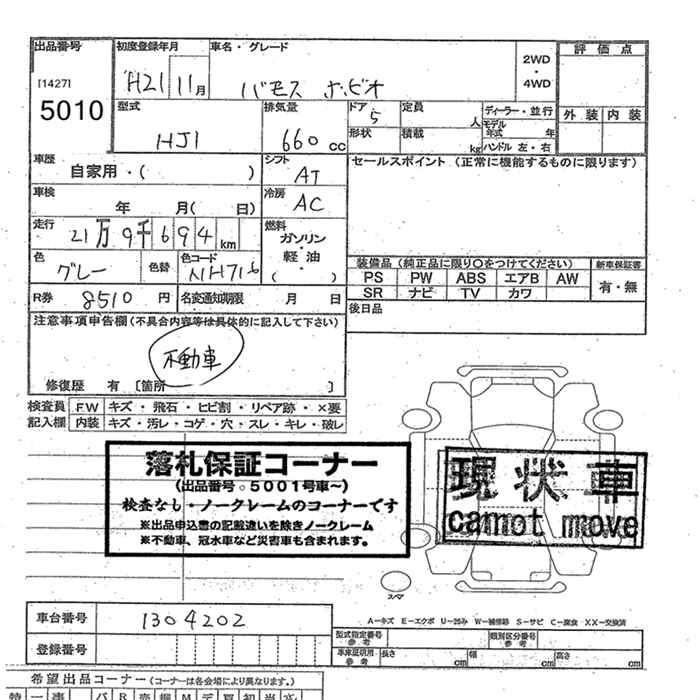 出品番号 初度登録年月 車名・グレード 2WD・4WD 評価点
[1427]
5010
H21 11月 バモス ホビオ
型式 排気量 ドア 定員 人 ディーラー・並行 外装 内装
HJ1 660 cc 5
形状 積載 kg モデル年式 年
ハンドル 左・右
車歴 シフト セールスポイント (正常に機能するものに限ります)
自家用・( ) AT
車検 冷房
年 月( 日) AC
走行 燃料
21万9千694km ガソリン・軽油 ( )
色 色替 色コード 装備品 (純正品に限り○をつけてください) 新車保証書
グレー PS PW ABS エアB AW 有・無
SR ナビ TV カワ
R券 8510円 名変通知期限 月 日 後日品
注意事項申告欄 (不具合内容等は具体的に記入して下さい)
不動車
修復歴 有 〔箇所 〕
検査員 FW キズ・飛石・ヒビ割・リペア跡・×要
記入欄 内装 キズ・汚レ・コゲ・穴・スレ・キレ・破レ
落札保証コーナー
(出品番号。5001号車~)
検査なし・ノークレームのコーナーです
※出品申込書の記載違いを除きノークレーム
※不動車、冠水車など災害車も含まれます。
現状車
camot move
スマ
A-キズ E-エクボ U-凹み W-補修跡 S-サビ C-腐食 XX-交換済
車台番号 1304202
登録番号
型式指定番号 参考 類別区分番号 参考
車庫証明用 参考 長さ cm 幅 cm 高さ cm
希望出品コーナー (コーナーは各会場により異なります。)